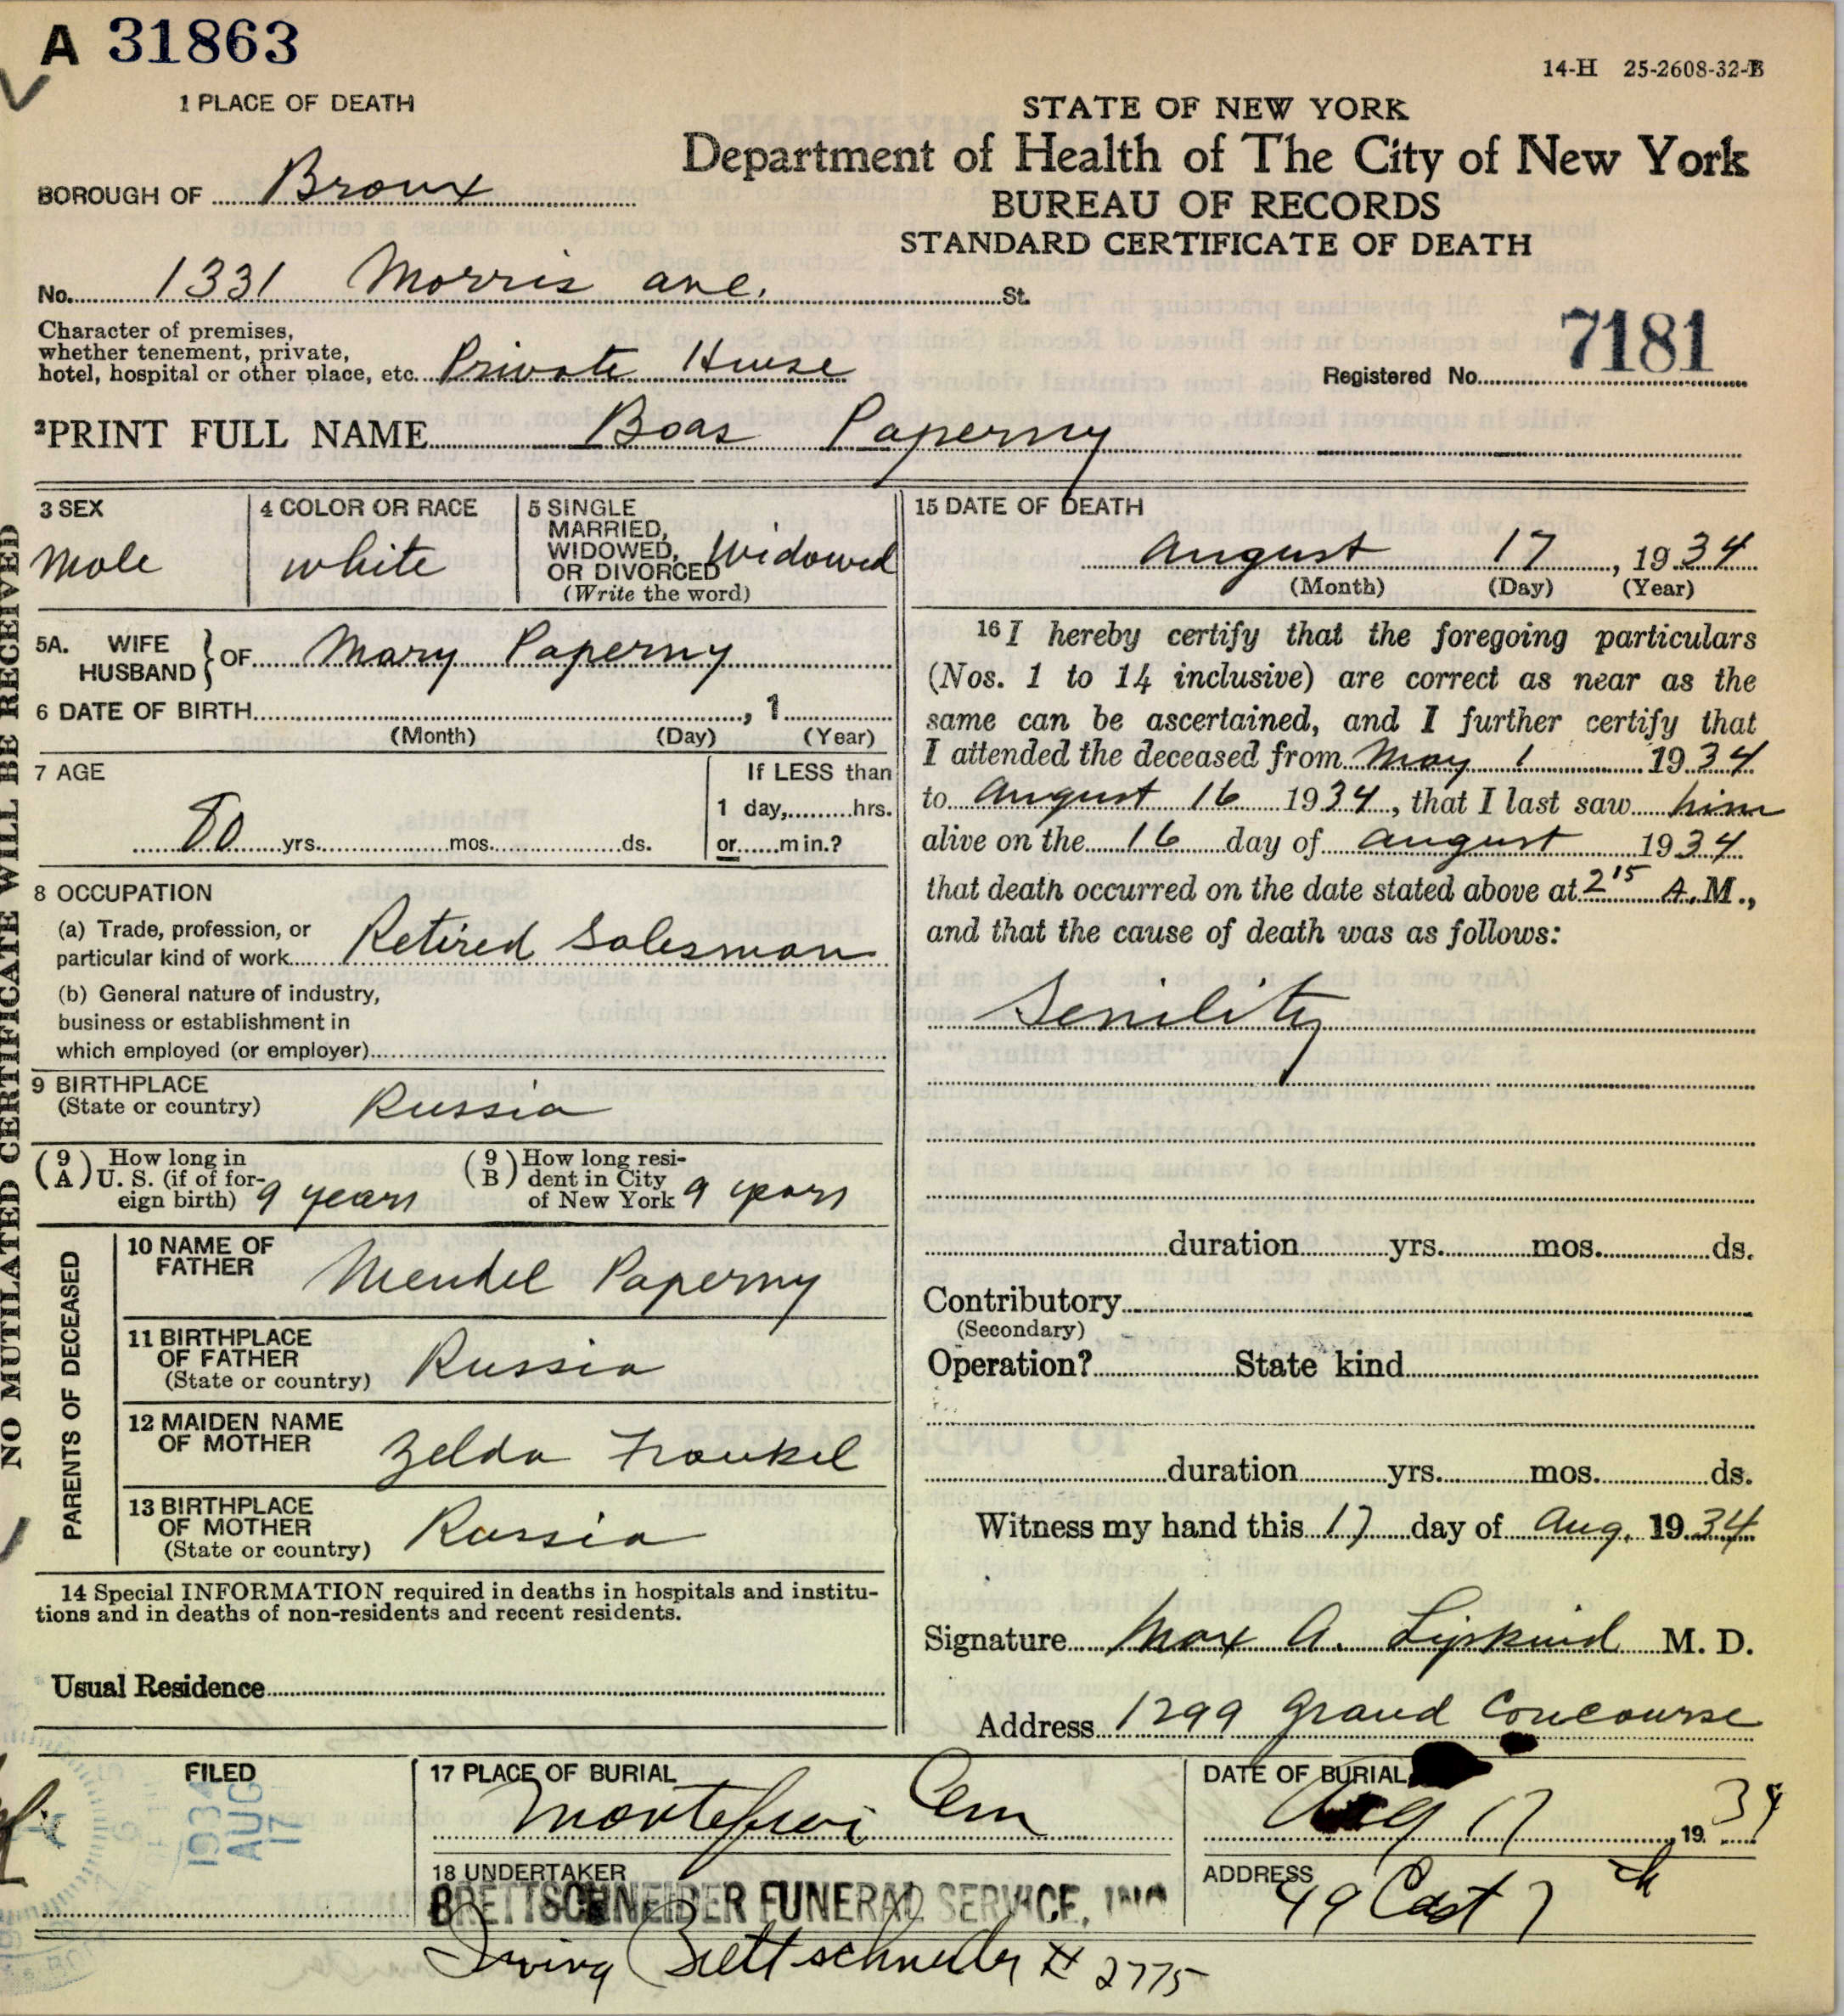 A 31863
14-H 25-2608-32-B
1 PLACE OF DEATH
STATE OF NEW YORK
Department of Health of The City of New York
BUREAU OF RECORDS
STANDARD CERTIFICATE OF DEATH
BOROUGH OF Bronx
No. 1331 Morris ave. St.
Character of premises,
whether tenement, private,
hotel, hospital or other place, etc. Private House
Registered No. 7181
2 PRINT FULL NAME Boas Paperny
NO MUTILATED CERTIFICATE WILL BE RECEIVED
3 SEX
Male
4 COLOR OR RACE
white
5 SINGLE
MARRIED,
WIDOWED,
OR DIVORCED
(Write the word)
Widowed
5A. WIFE
HUSBAND } OF Mary Paperny
6 DATE OF BIRTH , 1
(Month) (Day) (Year)
7 AGE
80 yrs. mos. ds.
If LESS than
1 day, hrs.
or min.?
8 OCCUPATION
(a) Trade, profession, or
particular kind of work Retired Salesman
(b) General nature of industry,
business or establishment in
which employed (or employer)
9 BIRTHPLACE
(State or country) Russia
(9 A) How long in
U. S. (if of for-
eign birth) 9 years
(9 B) How long resi-
dent in City
of New York 9 years
PARENTS OF DECEASED
10 NAME OF
FATHER Mendel Paperny
11 BIRTHPLACE
OF FATHER
(State or country) Russia
12 MAIDEN NAME
OF MOTHER Zelda Frankel
13 BIRTHPLACE
OF MOTHER
(State or country) Russia
14 Special INFORMATION required in deaths in hospitals and institu-
tions and in deaths of non-residents and recent residents.
Usual Residence
15 DATE OF DEATH
August 17, 1934
(Month) (Day) (Year)
16 I hereby certify that the foregoing particulars
(Nos. 1 to 14 inclusive) are correct as near as the
same can be ascertained, and I further certify that
I attended the deceased from May 1 1934
to August 16 1934, that I last saw him
alive on the 16 day of August 1934
that death occurred on the date stated above at 2 15 A.M.,
and that the cause of death was as follows:
Senility
duration yrs. mos. ds.
Contributory
(Secondary)
Operation? State kind
duration yrs. mos. ds.
Witness my hand this 17 day of Aug. 1934
Signature Max A. Lipkind M. D.
Address 1299 Grand Concourse
FILED
1934
AUG
17
17 PLACE OF BURIAL
Montefiori Cem
DATE OF BURIAL
Aug 17 1934
18 UNDERTAKER
BRETTSCHNEIDER FUNERAL SERVICE, INC
ADDRESS
49 East 7th
Irving Brettschneider # 2775